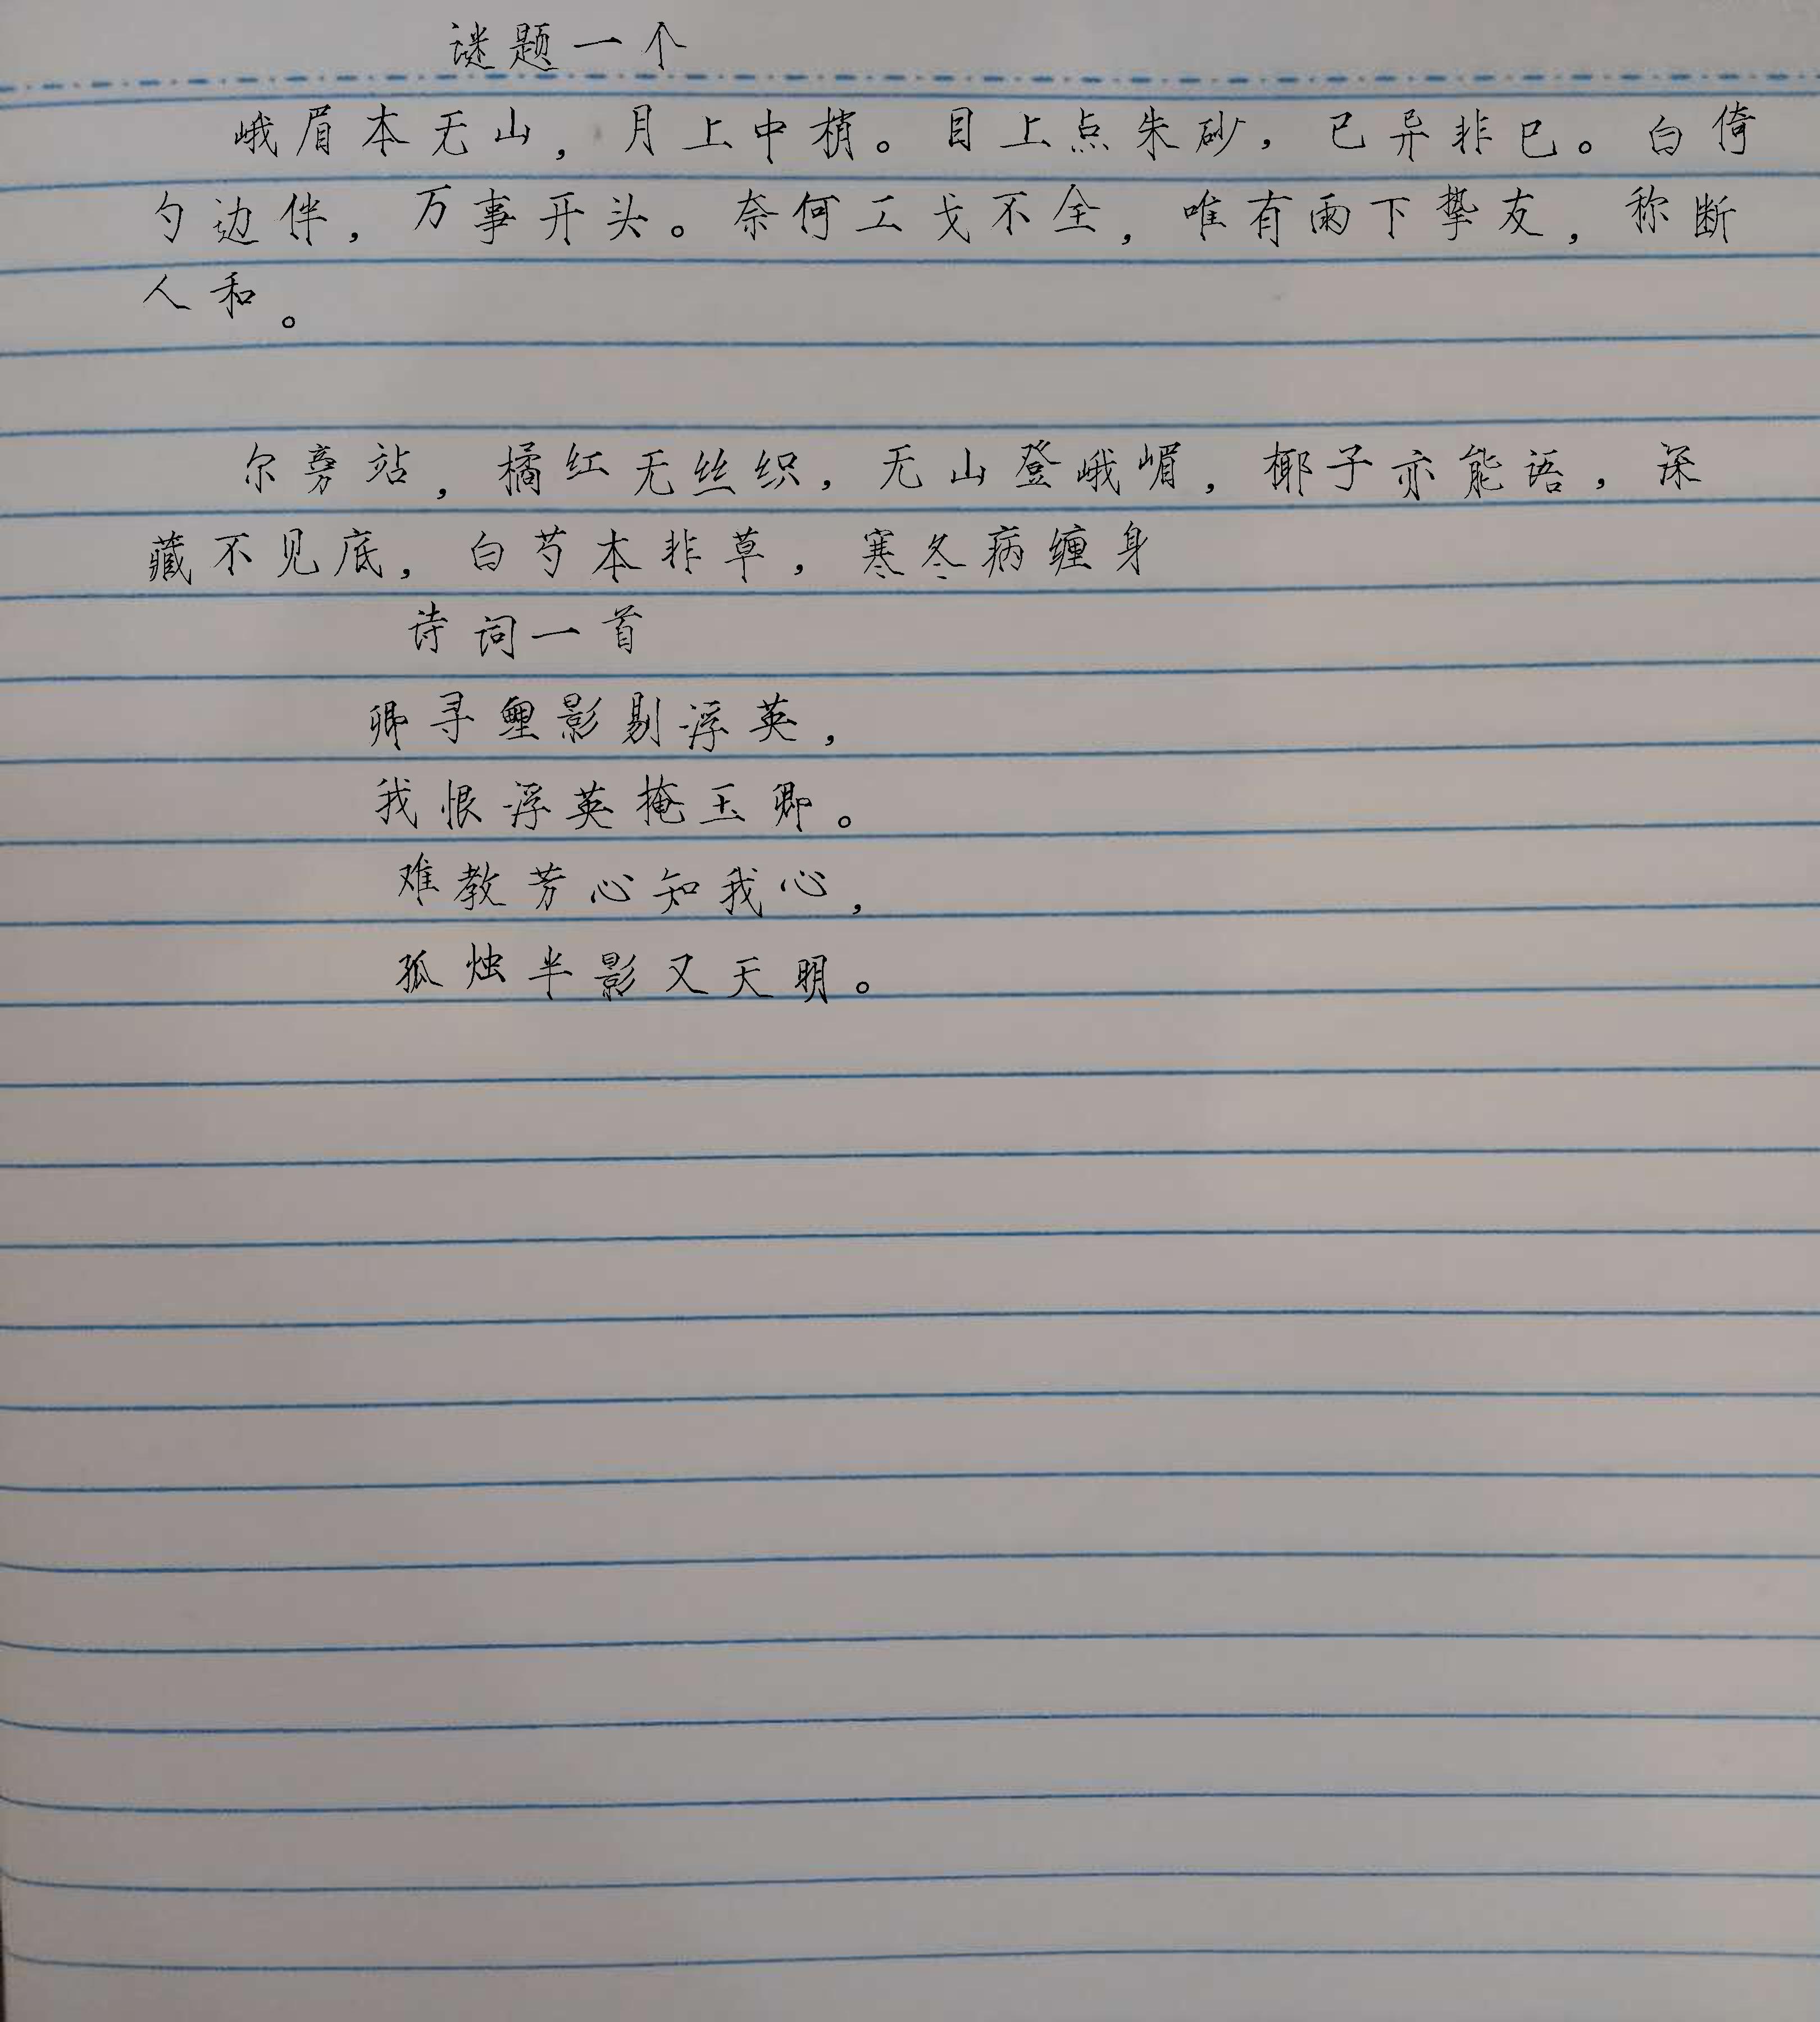 谜题一个
峨眉本无山，月上中梢。目上点朱砂，已异非巳。白倚
勺边伴，万事开头。奈何工戈不全，唯有雨下挚友，称断
人和。
尔旁站，橘红无丝织，无山登峨嵋，椰子亦能语，深
藏不见底，白芍本非草，寒冬病缠身
诗词一首
卿寻鲤影剔浮英，
我恨浮英掩玉卿。
难教芳心知我心，
孤烛半影又天明。